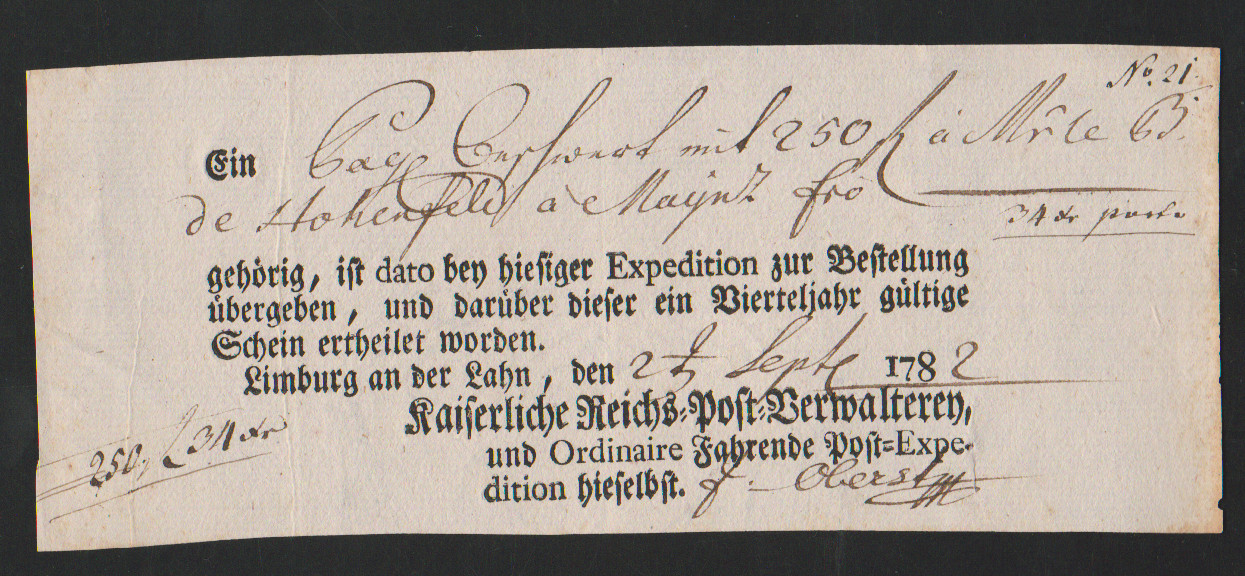 No. 21
Ein mit 250 f à
de Hohenfeld à Maynz fro
34 xr porto
gehörig, ist dato bey hiesiger Expedition zur Bestellung
übergeben, und darüber dieser ein Vierteljahr gültige
Schein ertheilet worden.
Limburg an der Lahn, den 2t Septe 1782
Kaiserliche Reichs-Post-Verwalterey,
und Ordinaire Fahrende Post-Expe-
dition hieselbst. Oberst
250 f 34 xr